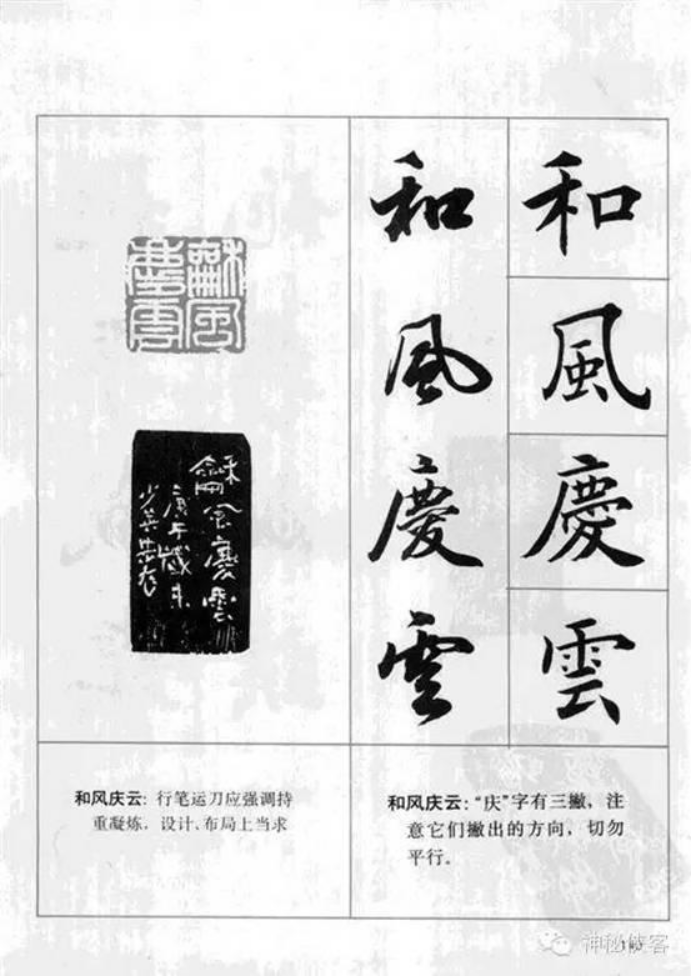 和風慶雲
和風慶雲
龢風慶雲
龢風慶雲
庚午歲末
和风庆云：行笔运刀应强调持
重凝炼．设计、布局上当求
和风庆云：“庆”字有三撇，注
意它们撇出的方向，切勿
平行。
神秘侠客